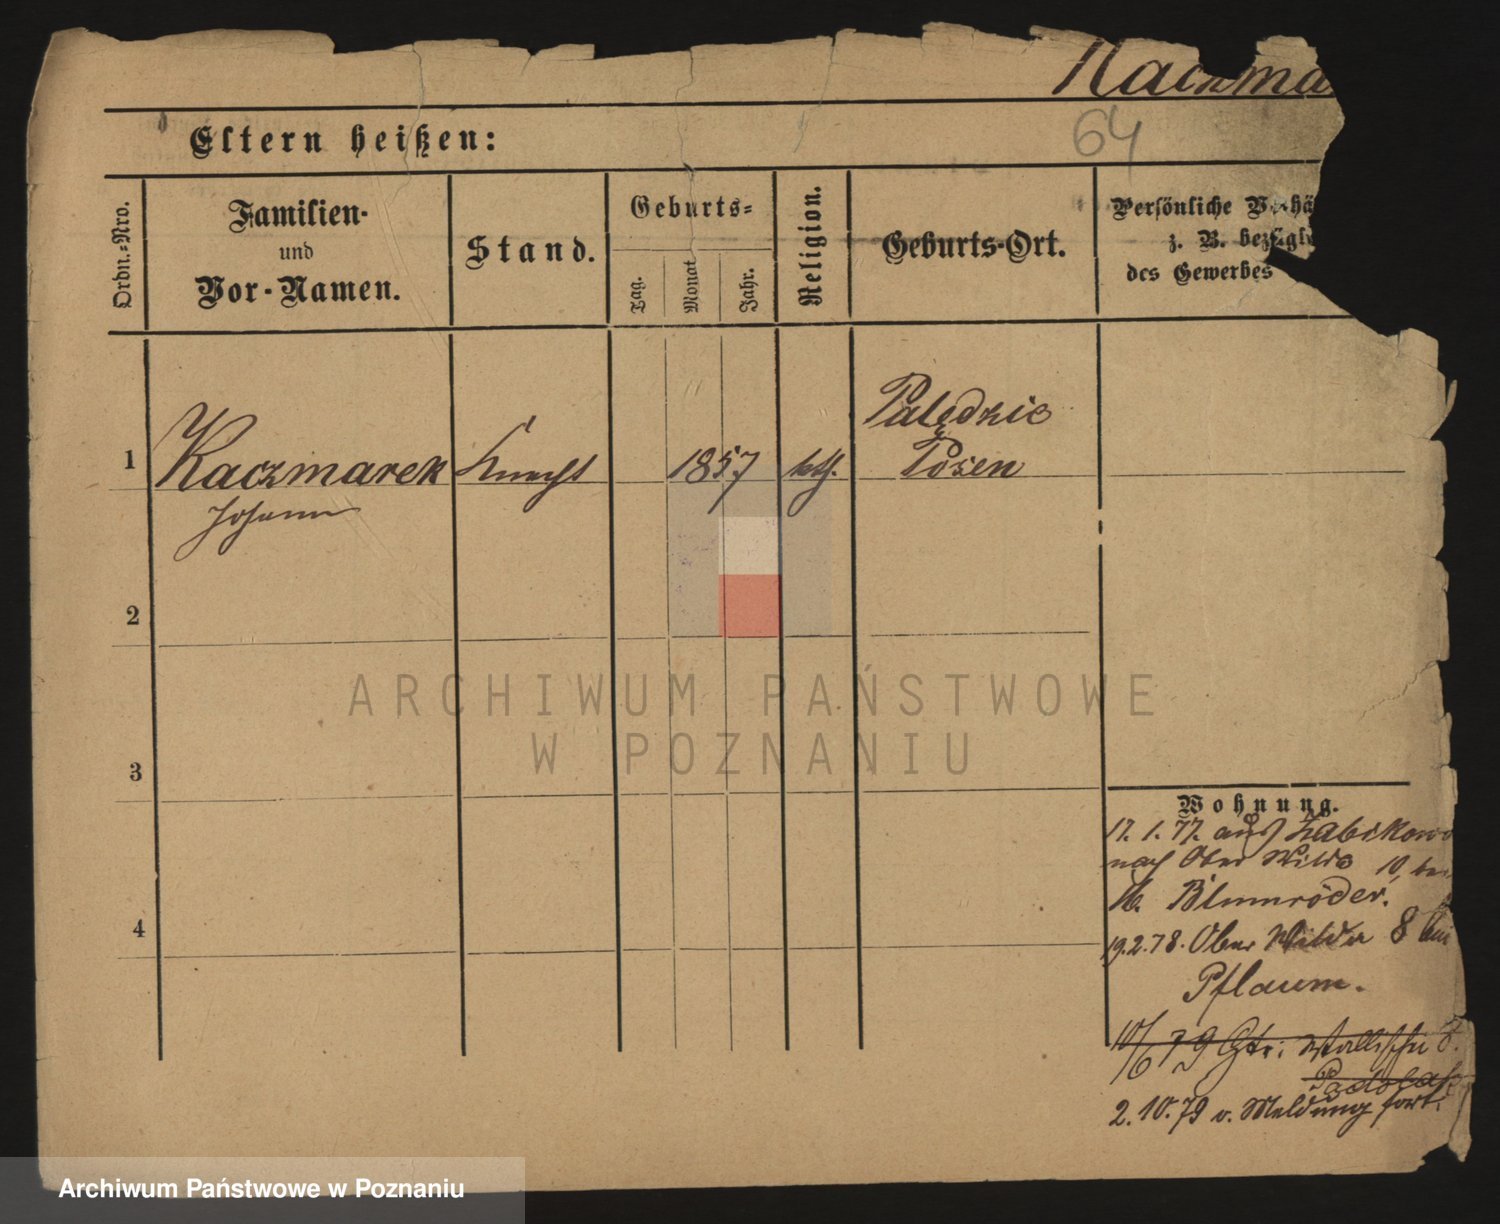 Kaczma
64
Eltern heißen:
Ordn.=Nro.
Familien-
und
Vor-Namen.
Stand.
Geburts=
Tag.
Monat
Jahr.
Religion.
Geburts-Ort.
Persönliche Verhä
z. B. bezügl
des Gewerbes
1
Kaczmarek
Johann
Knecht
1857
kath.
Palędzie
Posen
2
3
4
Wohnung.
17. 1. 77. aus Żabikowo
nach Ober Wilda 10, bei
Blumröder.
19.2.78. Ober Wilda 8 bei
Pflaum.
10/6 79 Gr. Wallischei
2.10.79 o. Meldung fort.
ARCHIWUM PAŃSTWOWE
W POZNANIU
Archiwum Państwowe w Poznaniu